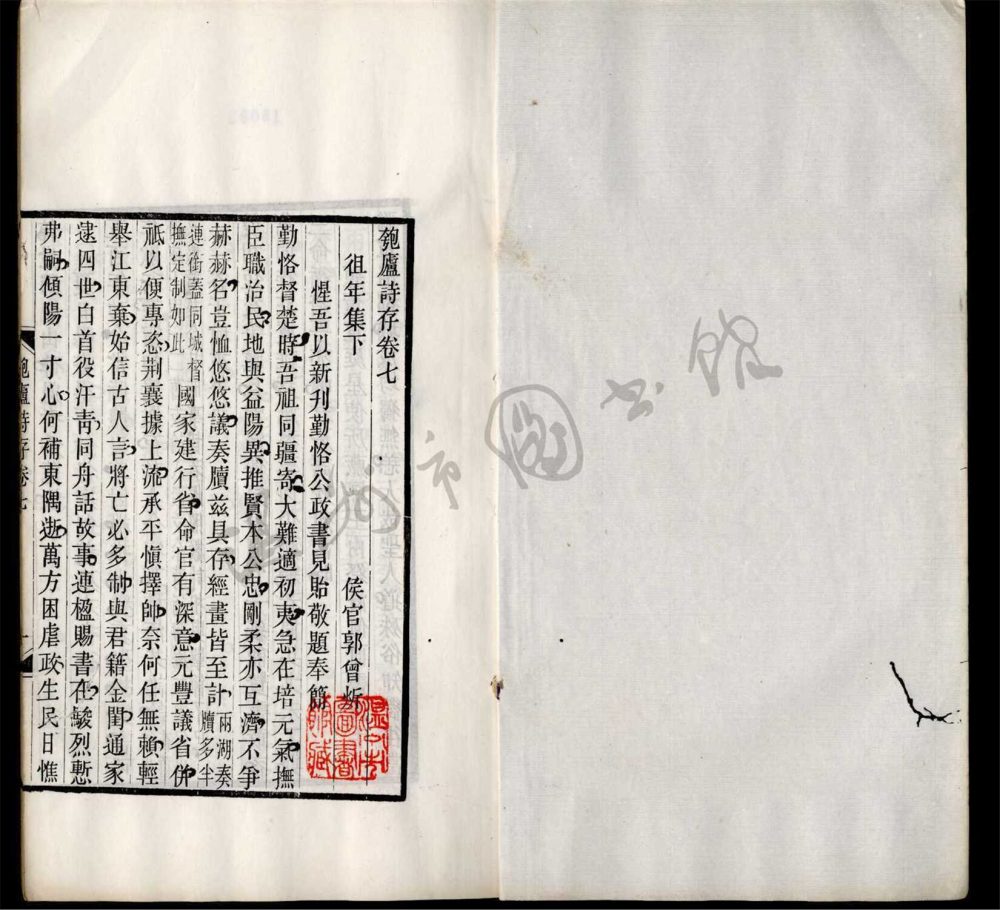 匏廬詩存卷七
徂年集下
侯官郭曾炘
惺吾以新刊勤恪公政書見貽敬題奉簡
勤恪督楚時吾祖同疆寄大難適初夷急在培元氣撫
臣職治民地與益陽異推賢本公忠剛柔亦互濟不爭
赫赫名豈恤悠悠議奏牘兹具存經畫皆至計兩湖奏牘多半
連銜蓋同城督撫定制如此國家建行省命官有深意元豐議省併
祇以便專恣荆襄據上流承平愼擇帥奈何任無賴輕
舉江東棄始信古人言將亡必多制與君籍金閨通家
逮四世白首役汗靑同舟話故事連楹賜書在駿烈慙
弗嗣傾陽一寸心何補東隅逝萬方困虐政生民日憔
匏廬詩存卷七
一
市圖書館